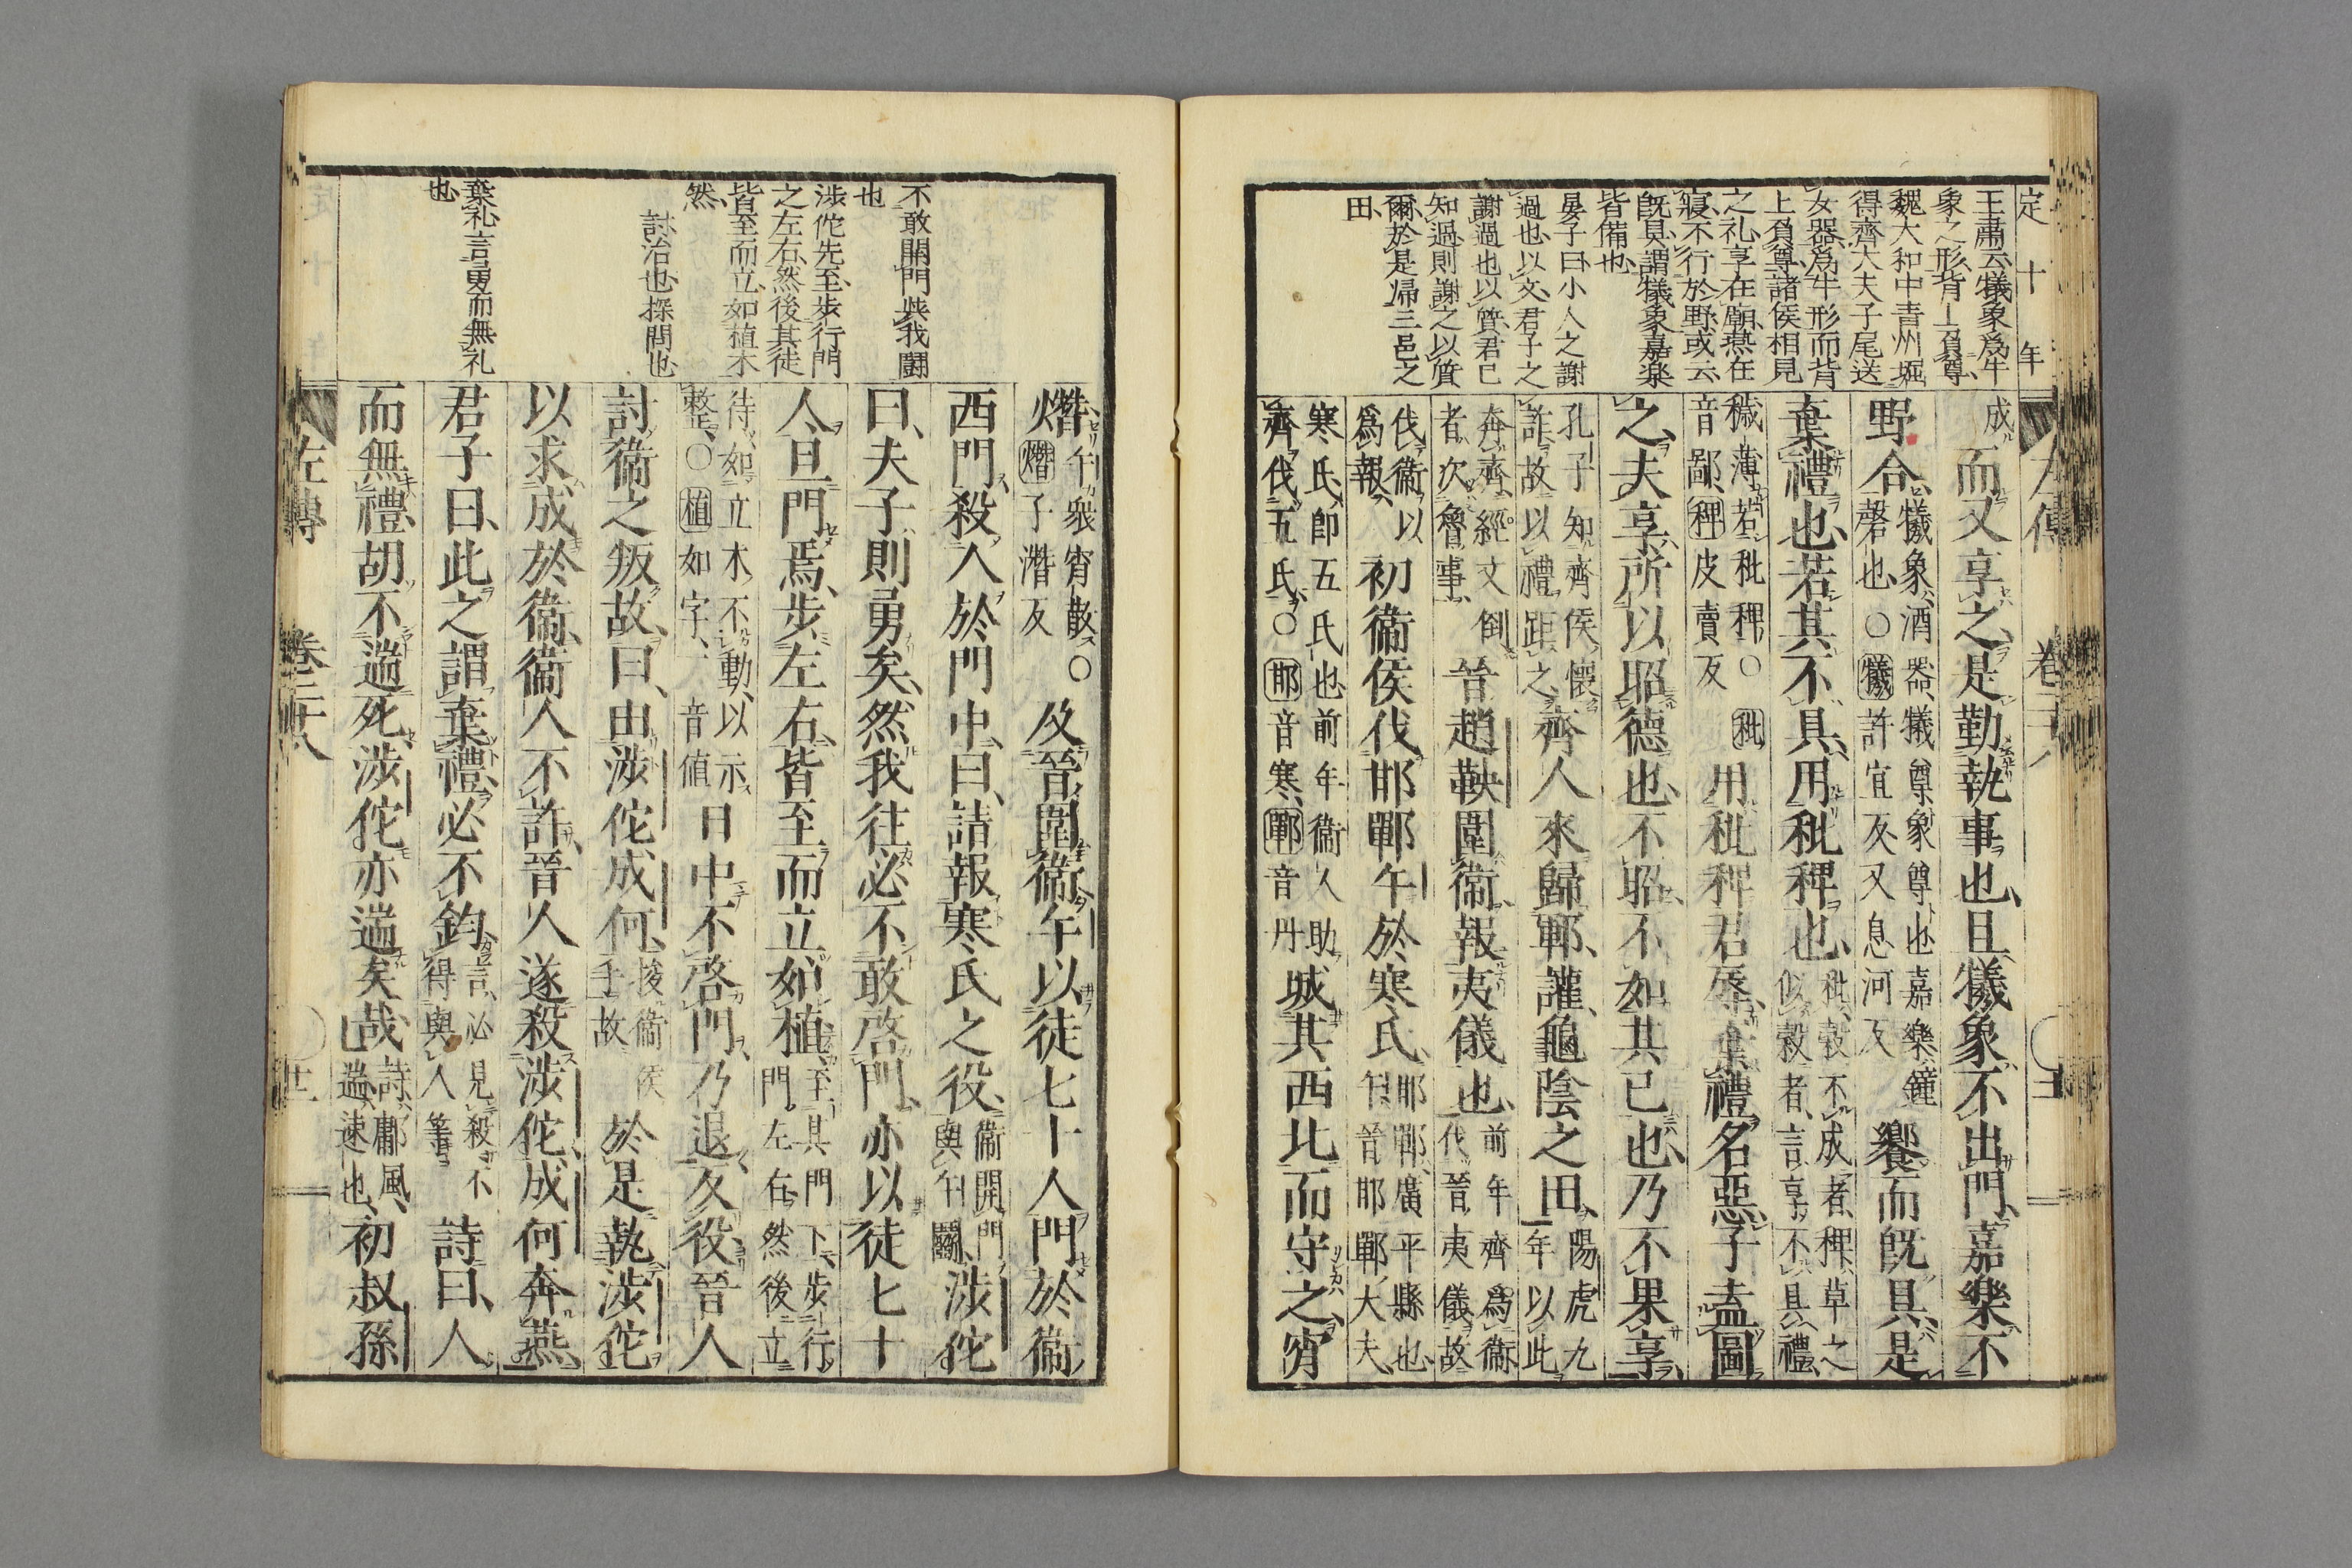 定十年
王肅云犧象爲牛
象之形背上負尊
魏大和中青州堀
得齊大夫子尾送
女器爲牛形而背
上負尊諸侯相見
之礼享在廟燕在
寢不行於野或云
既具謂犧象嘉樂
皆備也
晏子曰小人之謝
過也以文君子之
謝過也以質君已
知過則謝之以質
爾於是帰三邑之
田
成而又享之是勤執事也且犧象不出門嘉樂不
野合犧象酒器犧尊象尊也嘉樂鐘
磬也○犧許宜反又息河反饗而既具是
棄禮也若其不具用秕稗也秕穀不成者稗草之
似穀者言享不具禮
穢薄若秕稗○秕
音鄙稗皮賣反用秕稗君辱棄禮名惡子盍圖
之夫享所以昭德也不昭不如其已也乃不果享
孔子知齊侯懷
詐故以禮距之齊人來歸鄆讙龜陰之田陽虎九
年以此
奔齊經文倒
者次魯事晉趙鞅圍衞報夷儀也前年齊爲衞
伐晉夷儀故
伐衞以
爲報初衞侯伐邯鄲午於寒氏邯鄲廣平縣也
午晉邯鄲大夫
寒氏卽五氏也前年衞人助
齊伐五氏○邯音寒鄲音丹城其西北而守之宵
熸午衆宵散○
熸子潛反及晉圍衞午以徒七十人門於衞
西門殺人於門中曰請報寒氏之役衞開門
與午鬪涉佗
曰夫子則勇矣然我往必不敢啓門亦以徒七十
人旦門焉步左右皆至而立如植至其門下步行
門左右然後立
待如立木不動以示
整○植如字一音値日中不啓門乃退反役晉人
討衞之叛故曰由涉佗成何捘衞侯
手故於是執涉佗
以求成於衞衞人不許晉人遂殺涉佗成何奔燕
君子曰此之謂棄禮必不鈞言必見殺不
得與人等詩曰人
而無禮胡不遄死涉佗亦遄矣哉詩鄘風
遄速也初叔孫
不敢開門與我鬪
也
涉佗先至步行門
之左右然後其徒
皆至而立如植木
然
討治也探問也
棄礼言勇而無礼
也
左傳 卷二十八